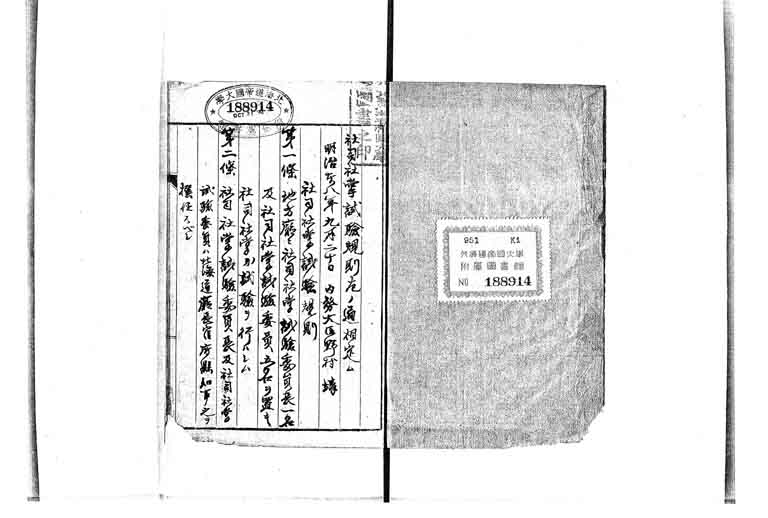 北海道帝國大學
188914
OCT
社司社掌試驗規則左ノ通相定ム
明治廿八年九月二十日 內務大臣野村 靖
社司社掌試驗規則
第一條 地方廳ニ社司社掌試驗委員長一名
及社司社掌試驗委員五名ヲ置キ
社司社掌ノ試驗ヲ行ハシム
第二條 社司社掌試驗委員長及社司社掌
試驗委員ハ北海道廳長官府縣知事之ヲ
撰任スヘシ
951 K1
北海道帝國大學
附屬圖書館
NO 188914